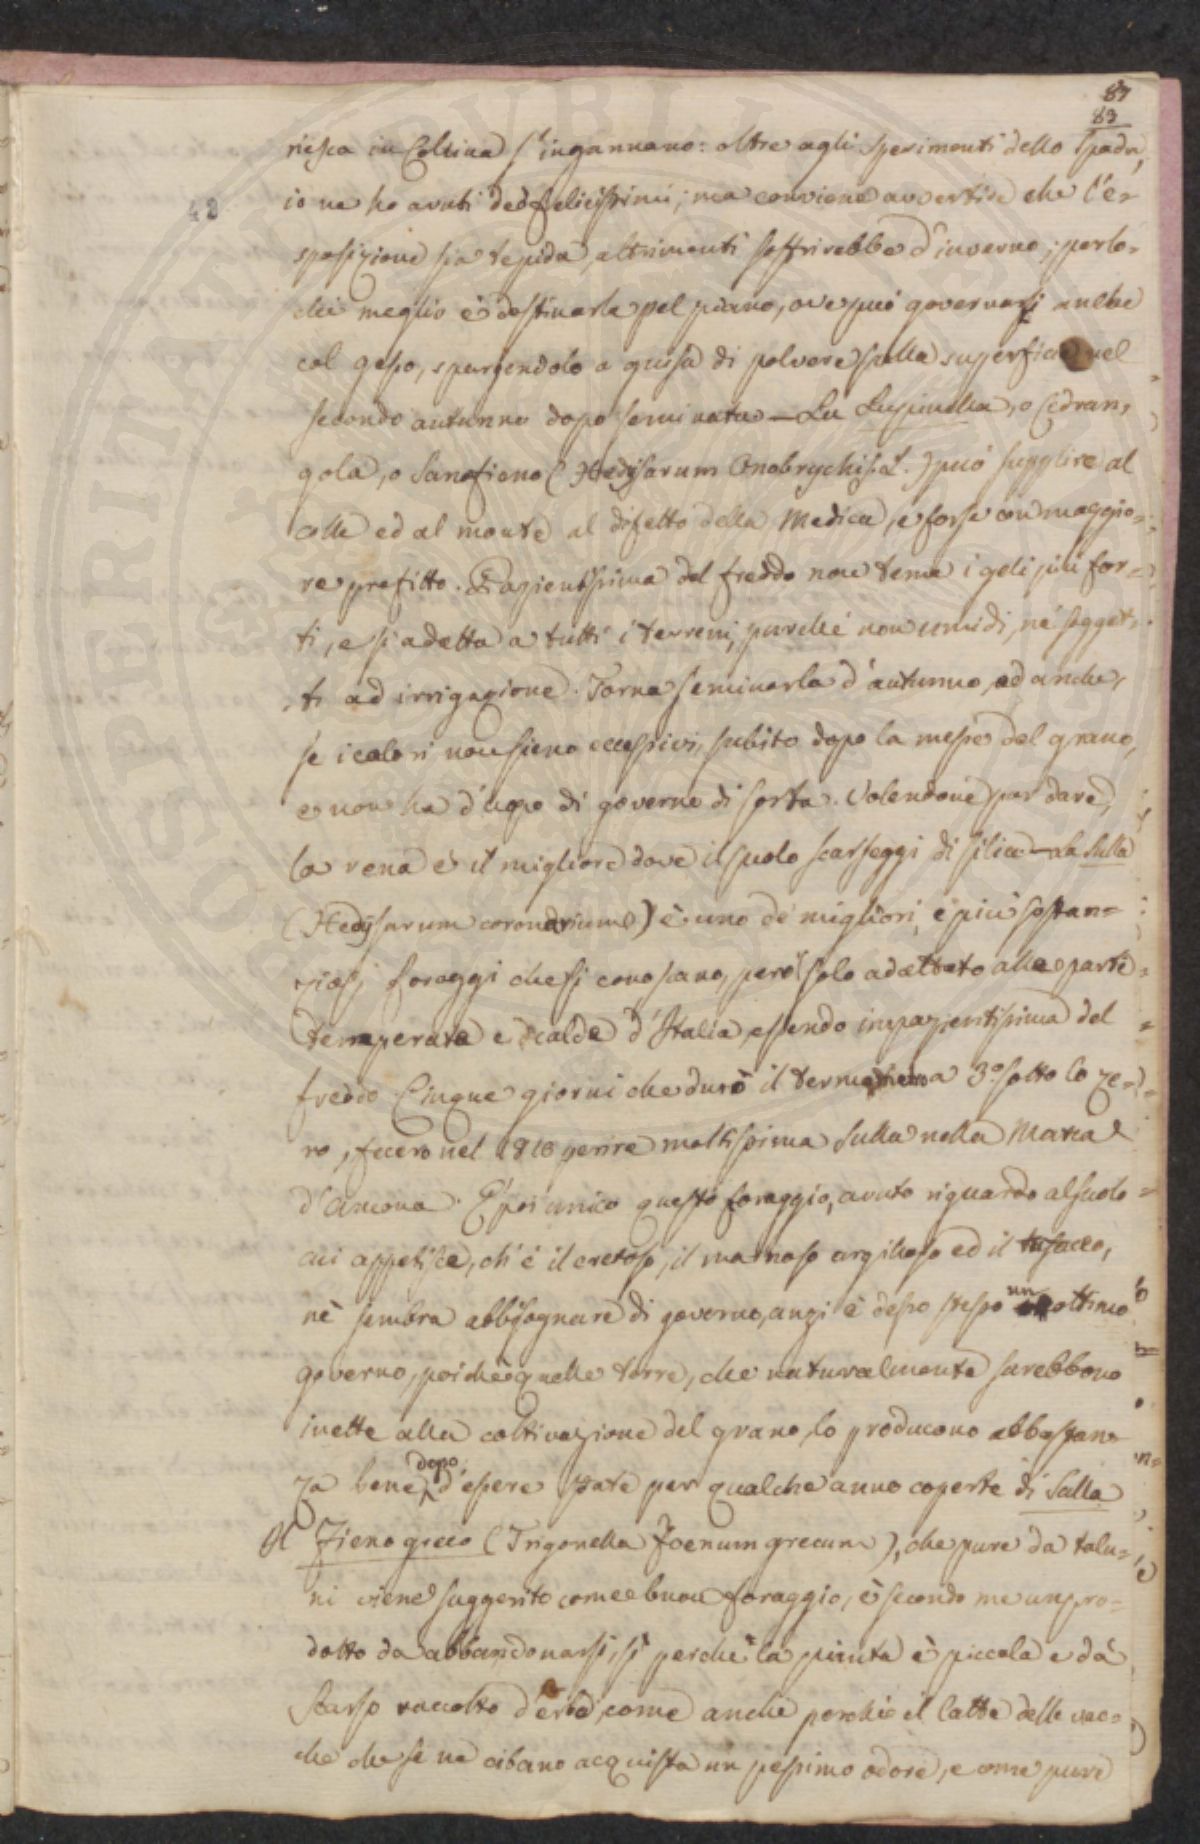 87
83
48
riesca in Collina s'ingannano: oltre agli sperimenti dello Spada,
io ne ho avuti de' felicissimi; ma conviene avvertire che l'e-
sposizione sia tepida, altrimenti soffrirebbe d'inverno; perlo-
chè meglio è destinarla pel piano, ove può governarsi anche
col gesso, spargendolo a guisa di polvere sulla superficie nel
secondo autunno dopo seminata — La Lupinella, o Cedran,
gola, o Sanofieno (Hedysarum Onobrychis L.) può supplire al
colle ed al monte al difetto della Medica, e forse con maggio-
re profitto. Pazientissima del freddo non teme i geli più for-
ti, e si adatta a tutti i terreni, purchè non umidi, nè sogget,
ti ad irrigazione. Torna seminarla d'autunno, ed anche,
se i calori non sieno eccessivi, subito dopo la messe del grano,
e non ha d'uopo di governo di sorta. Volendone pur dare,
la rena è il migliore dove il suolo scarseggi di silice — La Sulla
(Hedysarum coronarium) è uno de' migliori, e più sostan=
ziosi foraggi che si conoscano, però solo adattato alle parti
temperate e calde d'Italia, essendo impazientissima del
freddo Cinque giorni che durò il termometro a 3.° sotto lo ze=
ro, fecero nel 1810 perire moltissima Sulla nella Marca
d'Ancona. È poi unico questo foraggio, avuto riguardo al suolo
cui appetisce, ch'è il cretoso, il marnoso argilloso ed il tufaceo,
nè sembra abbisognare di governo, anzi è desso stesso un ottimo
governo, poichè quelle terre, che naturalmente sarebbono
inette alla coltivazione del grano, lo producono abbastan=
za bene, dopo d'essere state per qualche anno coperte di Sulla
Il Fieno greco (Trigonella Foenum grecum), che pure da talu=
ni viene suggerito come buon foraggio, è secondo me un pro=
dotto da abbandonarsi, sì perchè la pianta è piccola e dà
scarso raccolto d'erba, come anche perchè il latte delle vac=
che che se ne cibano acquista un pessimo odore, e come pure